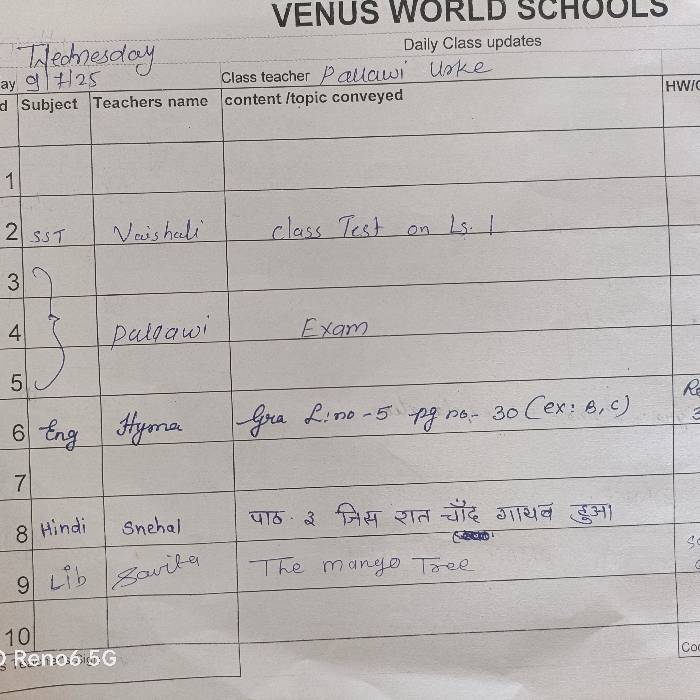 VENUS WORLD SCHOOLS
Daily Class updates
Wednesday
ay 9/7/25 Class teacher Pallawi Urke
d Subject Teachers name content /topic conveyed HW/C
1
2 SST Vaishali Class Test on Ls. 1
3
4 Pallawi Exam
5
6 Eng Hyma Gra L:no-5 pg no.- 30 (ex: B, C) Re
7
8 Hindi Snehal पाठ. ३ जिस रात चाँद गायब हुआ
9 Lib Savita The mango Tree
10
Reno6 5G